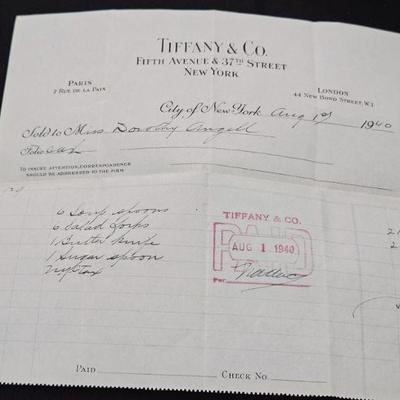 TIFFANY & CO.
FIFTH AVENUE & 37TH STREET
NEW YORK
PARIS
2 RUE DE LA PAIX
LONDON
44 NEW BOND STREET, W.1.
City of New York Aug 1st 1940
Sold to Miss Dorothy Angell
Folio
TO INSURE ATTENTION, CORRESPONDENCE
SHOULD BE ADDRESSED TO THE FIRM
6 Soup spoons
6 Salad forks
1 Butter knife
1 Sugar spoon
NY Tax
TIFFANY & CO.
PAID
AUG 1 1940
Per
PAID
CHECK NO.